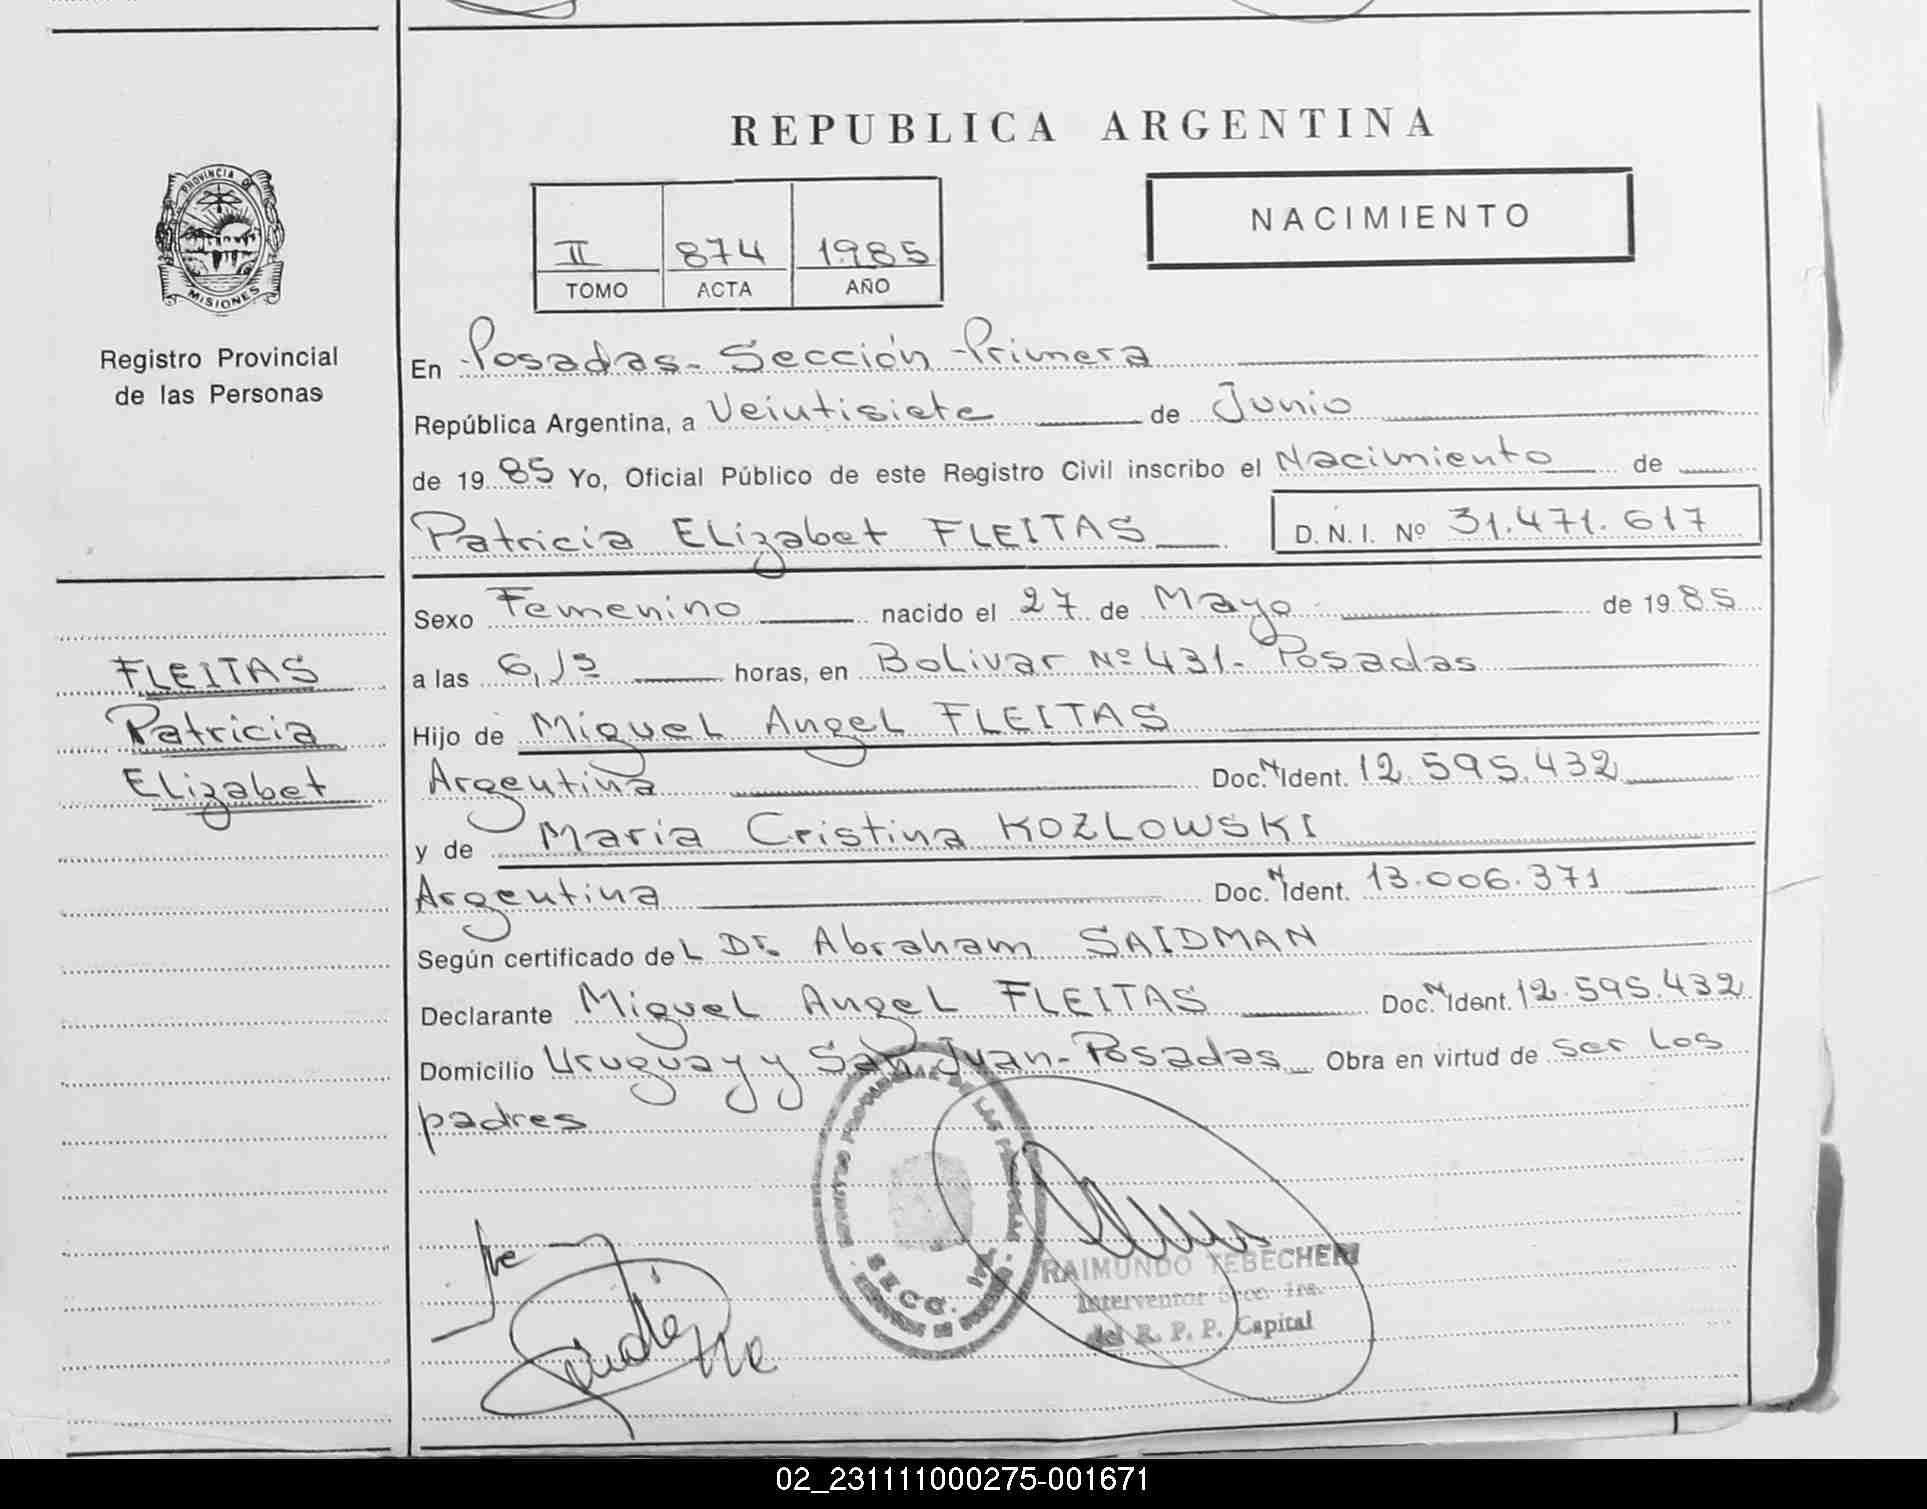 REPUBLICA ARGENTINA
PROVINCIA DE
MISIONES
Registro Provincial
de las Personas
II 874 1985
TOMO ACTA AÑO
NACIMIENTO
En Posadas - Sección Primera
República Argentina, a Veintisiete de Junio
de 1985 Yo, Oficial Público de este Registro Civil inscribo el Nacimiento de
Patricia Elizabet FLEITAS D.N.I. Nº 31.471.617
Sexo Femenino nacido el 27 de Mayo de 1985
a las 6,15 horas, en Bolivar Nº 431 - Posadas
Hijo de Miguel Angel FLEITAS
Argentina Doc. N. Ident. 12.595.432
y de Maria Cristina KOZLOWSKI
Argentina Doc. N. Ident. 13.006.371
Según certificado del Dr. Abraham SAIDMAN
Declarante Miguel Angel FLEITAS Doc. N. Ident. 12.595.432
Domicilio Uruguay y San Juan - Posadas Obra en virtud de ser los
padres
FLEITAS
Patricia
Elizabet
SECC. 1ra.
RAIMUNDO TEBECHERI
Interventor Secc. 1ra.
del R. P. P. Capital
02_231111000275-001671